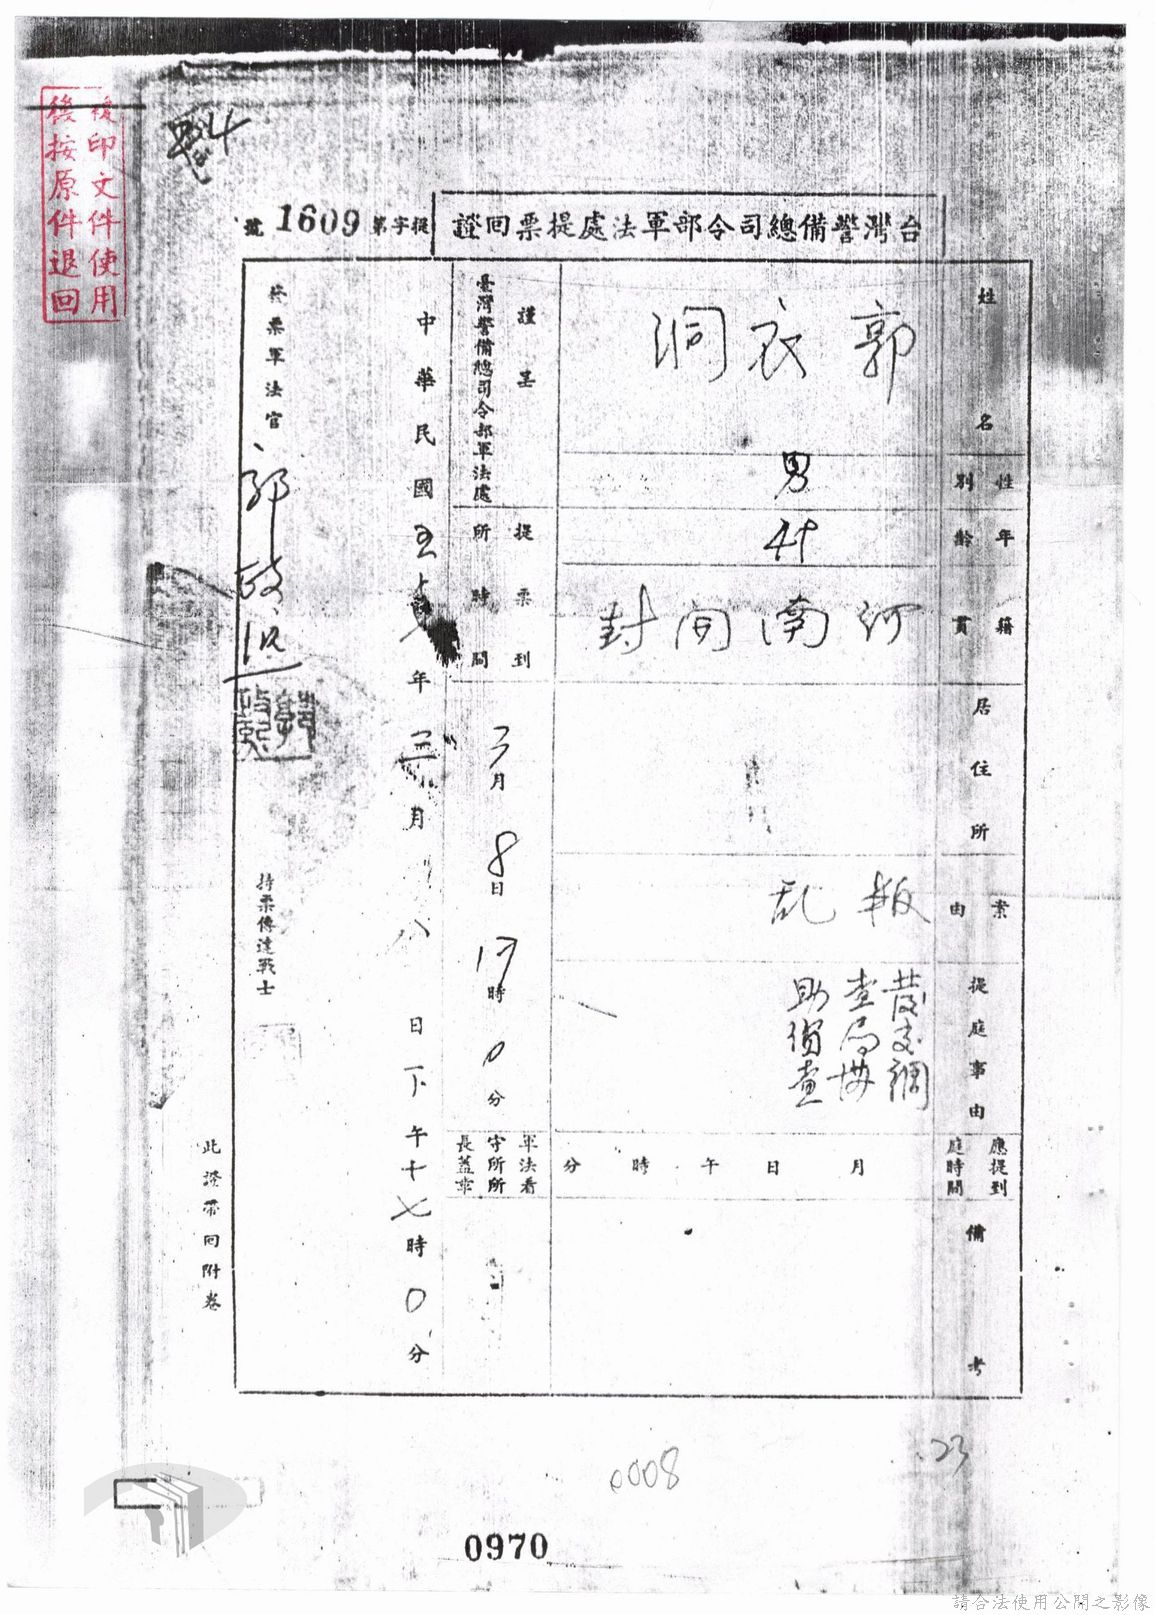 台灣警備總司令部軍法處提票回證
提字第1609號
姓名
郭衣洞
性別
男
年齡
49
籍貫
河南開封
居住所
案由
叛乱
提庭事由
發交調
查局協
助偵查
應提到庭時間
月 日 午 時 分
備考
謹呈
臺灣警備總司令部軍法處
提票到所時間
3月8日17時0分
軍法看守所所長蓋章
中華民國五年三月八日下午十七時0分
承票軍法官
郭政熙
持票傳達戰士
此證帶回附卷
印文件使用
後按原件退回
0008
23
0970
請合法使用公開之影像